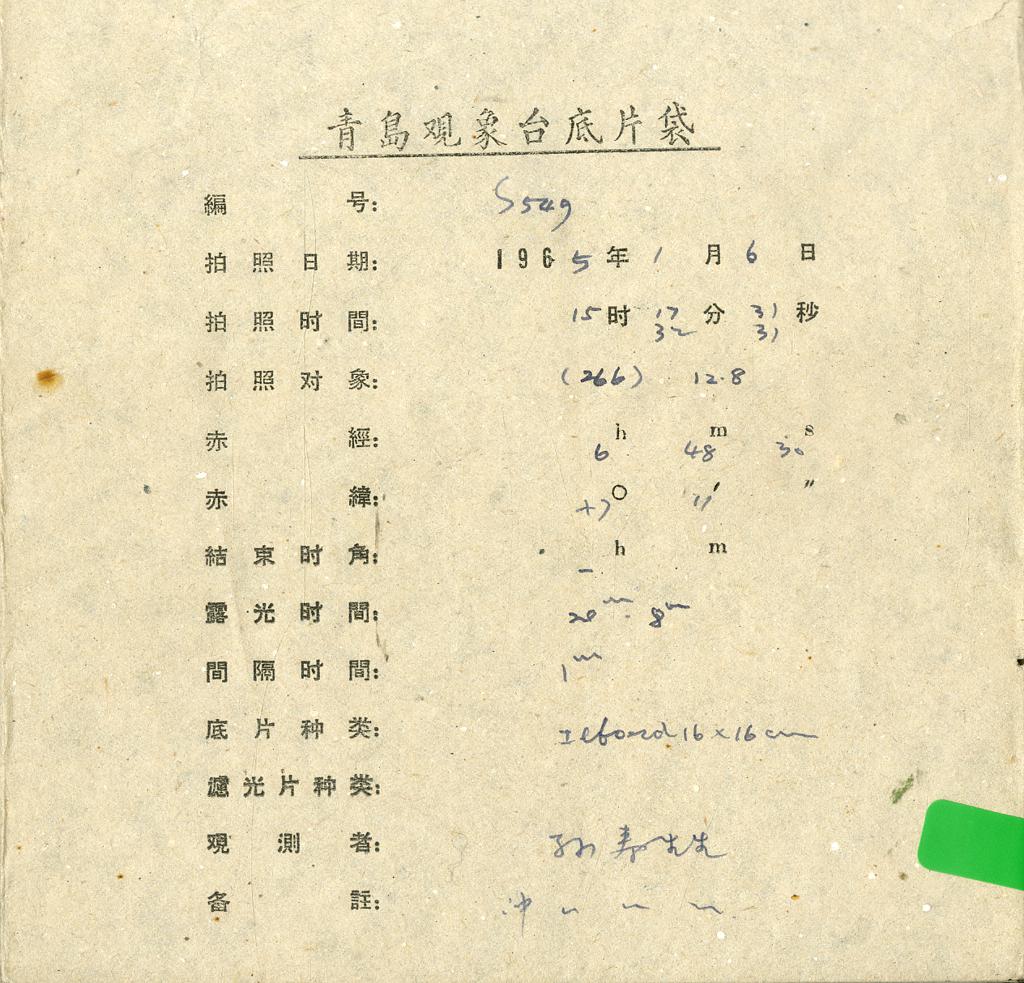 青島观象台底片袋
編号: S549
拍照日期: 1965年1月6日
拍照时間: 15时17分31秒
32 31
拍照对象: (266) 12.8
赤經: h m s
6 48 30
赤緯: ○ ′ ″
+7 11
結束时角: h m
–
露光时間: 20m. 8m
間隔时間: 1m
底片种类: 16×16cm
濾光片种类:
观測者: 孙寿
备註: 冲 〃